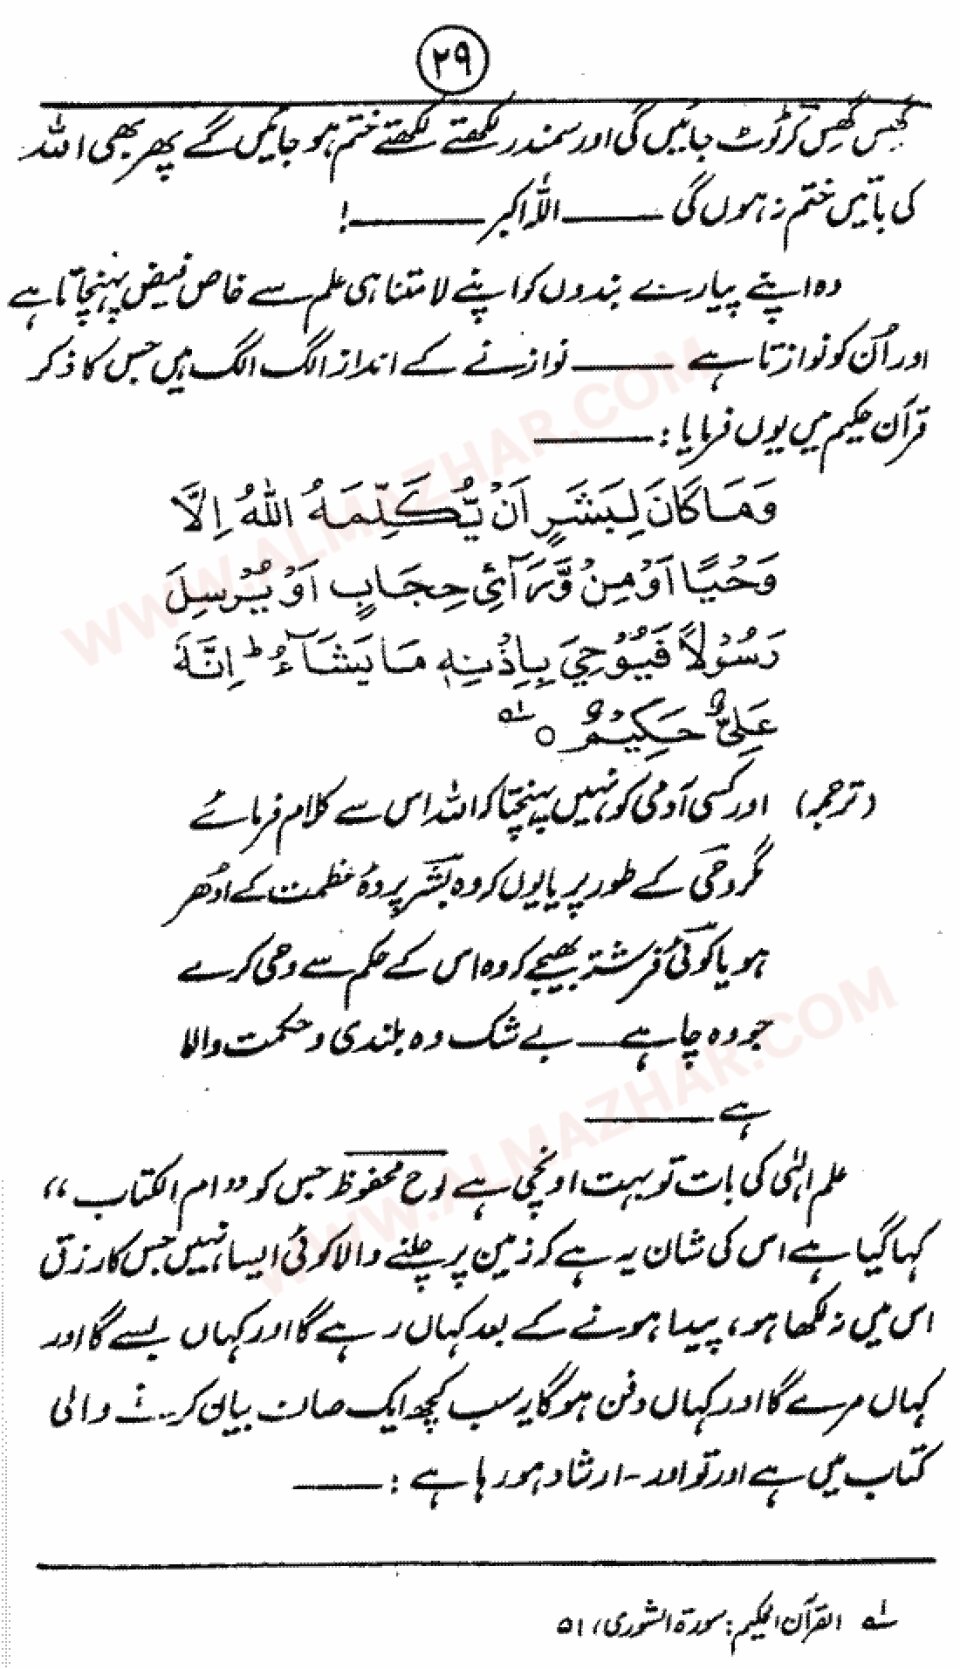 ۲۹
گھِس گھِس کر ٹوٹ جائیں گی اور سمندر لکھتے لکھتے ختم ہو جائیں گے پھر بھی اللہ
کی باتیں ختم نہ ہوں گی ــــــ اللہ اکبر ــــــــ!
وہ اپنے پیارے بندوں کو اپنے لامتناہی علم سے خاص فیض پہنچاتا ہے
اور اُن کو نوازتا ہے ــــــ نوازنے کے انداز الگ الگ ہیں جس کا ذکر
قرآن حکیم میں یوں فرمایا: ــــــــ
وَمَا كَانَ لِبَشَرٍ اَنْ يُّكَلِّمَهُ اللهُ اِلَّا
وَحْيًا اَوْ مِنْ وَّرَآئِ حِجَابٍ اَوْ يُرْسِلَ
رَسُوْلًا فَيُوْحِيَ بِاِذْنِهٖ مَا يَشَآءُ ؕ اِنَّهٗ
عَلِيٌّ حَكِيْمٌ ○ ؎۱
(ترجمہ) اور کسی آدمی کو نہیں پہنچتا کہ اللہ اس سے کلام فرمائے
مگر وحی کے طور پر یا یوں کہ وہ بشر پردۂ عظمت کے اُدھر
ہو یا کوئی فرشتہ بھیجے کہ وہ اس کے حکم سے وحی کرے
جو وہ چاہے ــــ بے شک وہ بلندی و حکمت والا
ہے ــــــــ
علم الٰہی کی بات تو بہت اونچی ہے لوح محفوظ جس کو ”ام الکتاب“
کہا گیا ہے اس کی شان یہ ہے کہ زمین پر چلنے والا کوئی ایسا نہیں جس کا رزق
اس میں نہ لکھا ہو، پیدا ہونے کے بعد کہاں رہے گا اور کہاں بسے گا اور
کہاں مرے گا اور کہاں دفن ہوگا یہ سب کچھ ایک صاف بیان کرنے والی
کتاب میں ہے اور تو اور - ارشاد ہو رہا ہے: ــــــ
؎۱ القرآن الحکیم: سورۃ الشوریٰ، ۵۱
WWW.ALMAZHAR.COM
WWW.ALMAZHAR.COM